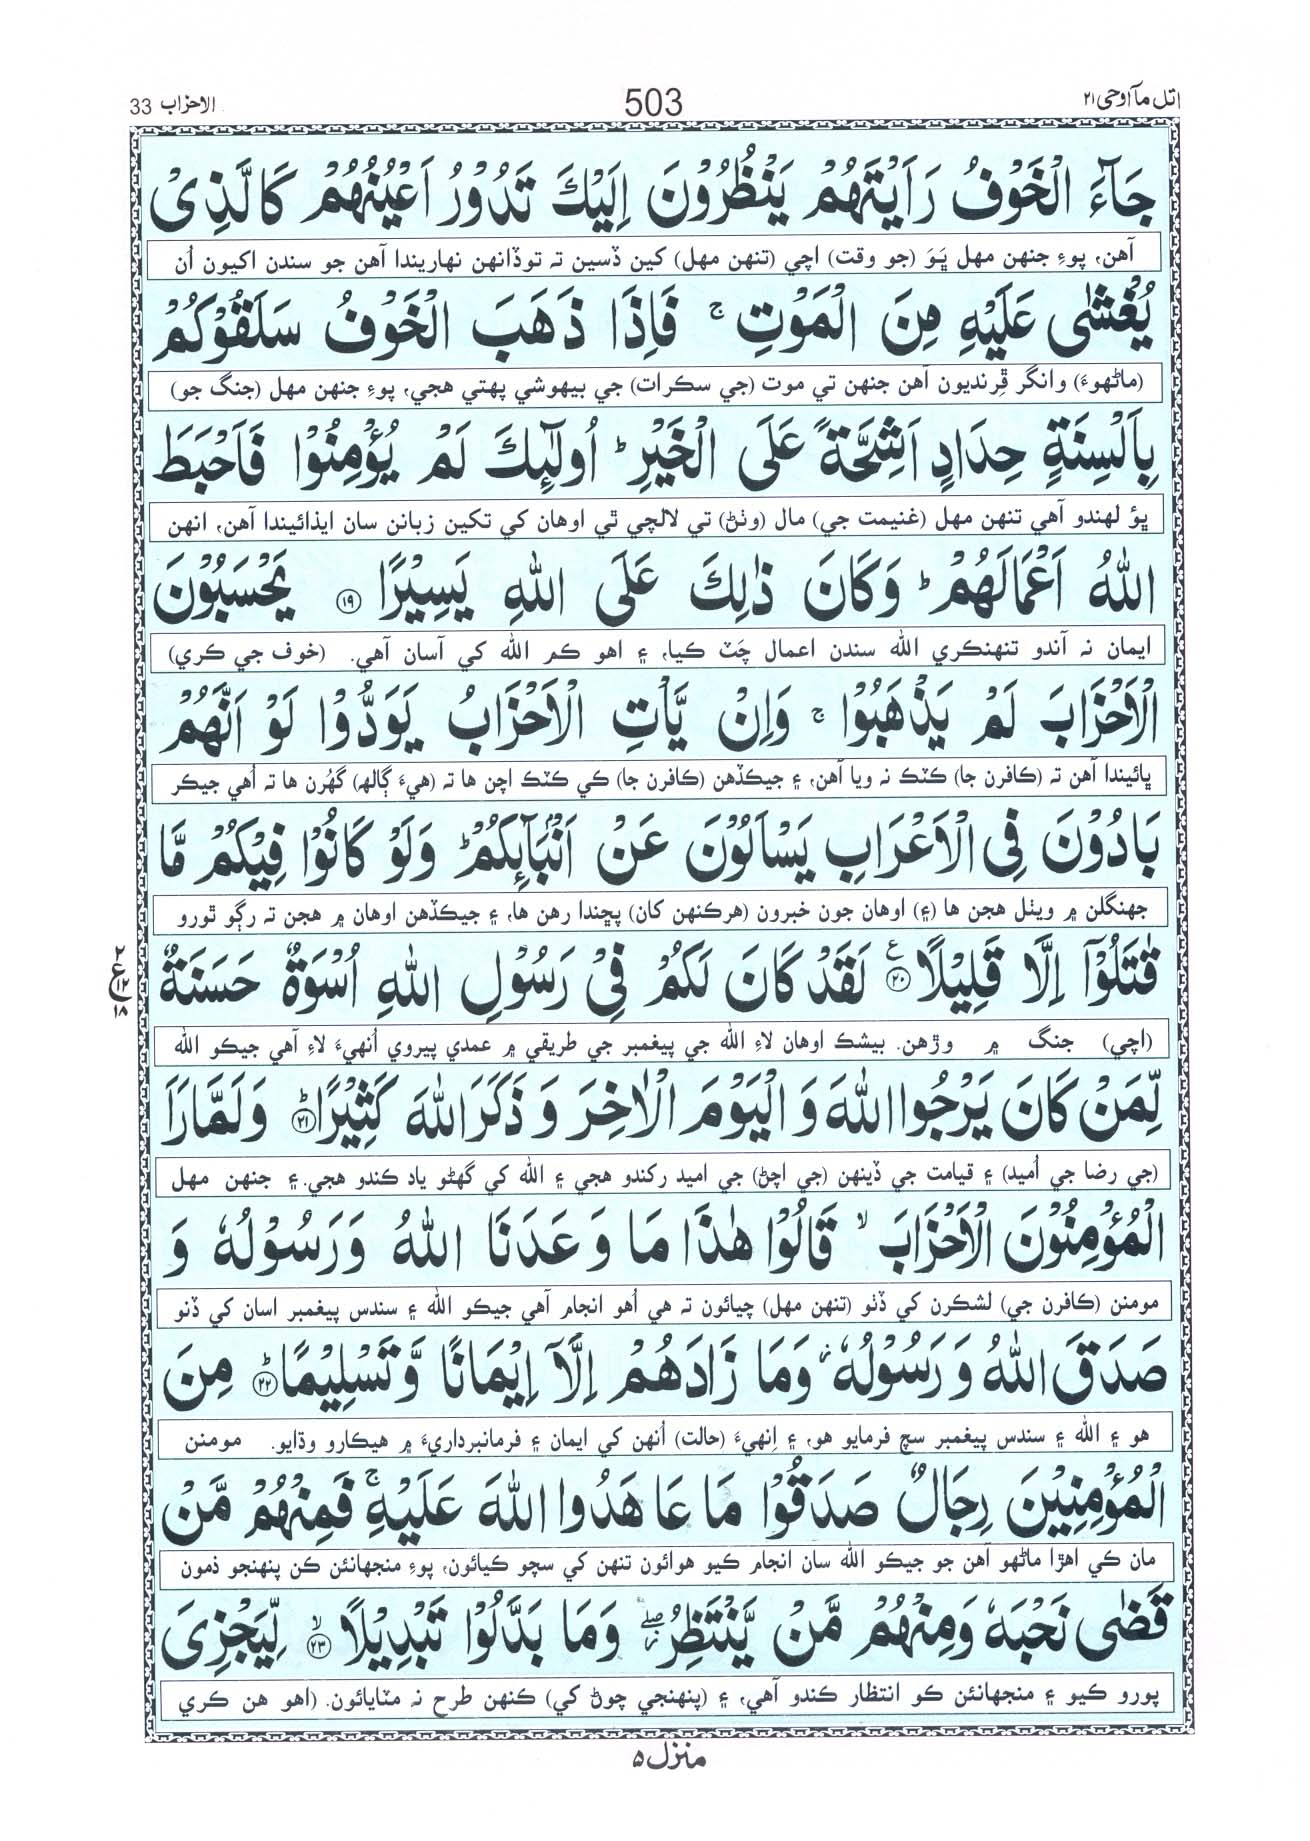 اتل مآاوحی ۲۱
503
الاحزاب 33
جَآءَ الْخَوْفُ رَاَيْتَهُمْ يَنْظُرُوْنَ اِلَيْكَ تَدُوْرُ اَعْيُنُهُمْ كَالَّذِىْ
آهن، پوءِ جنهن مهل ڀَوَ (جو وقت) اچي (تنهن مهل) کين ڏسين تہ توڏانهن نهاريندا آهن جو سندن اکيون اُن
يُغْشٰى عَلَيْهِ مِنَ الْمَوْتِ ۚ فَاِذَا ذَهَبَ الْخَوْفُ سَلَقُوْكُمْ
(ماڻهوءَ) وانگر ڦِرنديون آهن جنهن تي موت (جي سڪرات) جي بيهوشي پهتي هجي، پوءِ جنهن مهل (جنگ جو)
بِاَلْسِنَةٍ حِدَادٍ اَشِحَّةً عَلَى الْخَيْرِ ؕ اُولٰٓئِكَ لَمْ يُؤْمِنُوْا فَاَحْبَطَ
ڀؤ لهندو آهي تنهن مهل (غنيمت جي) مال (وٺڻ) تي لالچي ٿي اوهان کي تکين زبانن سان ايذائيندا آهن، انهن
اللّٰهُ اَعْمَالَهُمْ ؕ وَكَانَ ذٰلِكَ عَلَى اللّٰهِ يَسِيْرًا ۝۱۹ يَحْسَبُوْنَ
ايمان نہ آندو تنهنڪري الله سندن اعمال چَٽ ڪيا، ۽ اهو ڪم الله کي آسان آهي. (خوف جي ڪري)
الْاَحْزَابَ لَمْ يَذْهَبُوْا ۚ وَاِنْ يَّاْتِ الْاَحْزَابُ يَوَدُّوْا لَوْ اَنَّهُمْ
ڀائيندا آهن تہ (ڪافرن جا) ڪٽڪ نہ ويا آهن، ۽ جيڪڏهن (ڪافرن جا) ڪي ڪٽڪ اچن ها تہ (هيءَ ڳالهہ) گهُرن ها تہ اُهي جيڪر
بَادُوْنَ فِى الْاَعْرَابِ يَسْاَلُوْنَ عَنْ اَنْۢبَآئِكُمْ ؕ وَلَوْ كَانُوْا فِيْكُمْ مَّا
جهنگلن ۾ ويٺل هجن ها (۽) اوهان جون خبرون (هرڪنهن کان) پڇندا رهن ها، ۽ جيڪڏهن اوهان ۾ هجن تہ رڳو ٿورو
قٰتَلُوْٓا اِلَّا قَلِيْلًا ۝۲۰ۧ لَقَدْ كَانَ لَكُمْ فِىْ رَسُوْلِ اللّٰهِ اُسْوَةٌ حَسَنَةٌ
۲ ع ۱۲ ۱۸
(اچي) جنگ ۾ وڙهن. بيشڪ اوهان لاءِ الله جي پيغمبر جي طريقي ۾ عمدي پيروي اُنهيءَ لاءِ آهي جيڪو الله
لِّمَنْ كَانَ يَرْجُوا اللّٰهَ وَالْيَوْمَ الْاٰخِرَ وَذَكَرَ اللّٰهَ كَثِيْرًا ؕ۝۲۱ وَلَمَّا رَاَ
(جي رضا جي اُميد) ۽ قيامت جي ڏينهن (جي اچڻ) جي اميد رکندو هجي ۽ الله کي گهڻو ياد ڪندو هجي. ۽ جنهن مهل
الْمُؤْمِنُوْنَ الْاَحْزَابَ ۙ قَالُوْا هٰذَا مَا وَعَدَنَا اللّٰهُ وَرَسُوْلُهٗ وَ
مومنن (ڪافرن جي) لشڪرن کي ڏٺو (تنهن مهل) چيائون تہ هي اُهو انجام آهي جيڪو الله ۽ سندس پيغمبر اسان کي ڏنو
صَدَقَ اللّٰهُ وَرَسُوْلُهٗ ؗ وَمَا زَادَهُمْ اِلَّآ اِيْمَانًا وَّتَسْلِيْمًا ؕ۝۲۲ مِنَ
هو ۽ الله ۽ سندس پيغمبر سچ فرمايو هو، ۽ اِنهيءَ (حالت) اُنهن کي ايمان ۽ فرمانبرداريءَ ۾ هيڪارو وڌايو. مومنن
الْمُؤْمِنِيْنَ رِجَالٌ صَدَقُوْا مَا عَاهَدُوا اللّٰهَ عَلَيْهِ ۚ فَمِنْهُمْ مَّنْ
مان ڪي اهڙا ماڻهو آهن جو جيڪو الله سان انجام ڪيو هوائون تنهن کي سچو ڪيائون، پوءِ منجهانئن ڪن پنهنجو ذمون
قَضٰى نَحْبَهٗ وَمِنْهُمْ مَّنْ يَّنْتَظِرُ ۖؗ وَمَا بَدَّلُوْا تَبْدِيْلًا ۙ۝۲۳ لِّيَجْزِىَ
پورو ڪيو ۽ منجهانئن ڪو انتظار ڪندو آهي، ۽ (پنهنجي چوڻ کي) ڪنهن طرح نہ مٽايائون. (اهو هن ڪري
منزل ۵